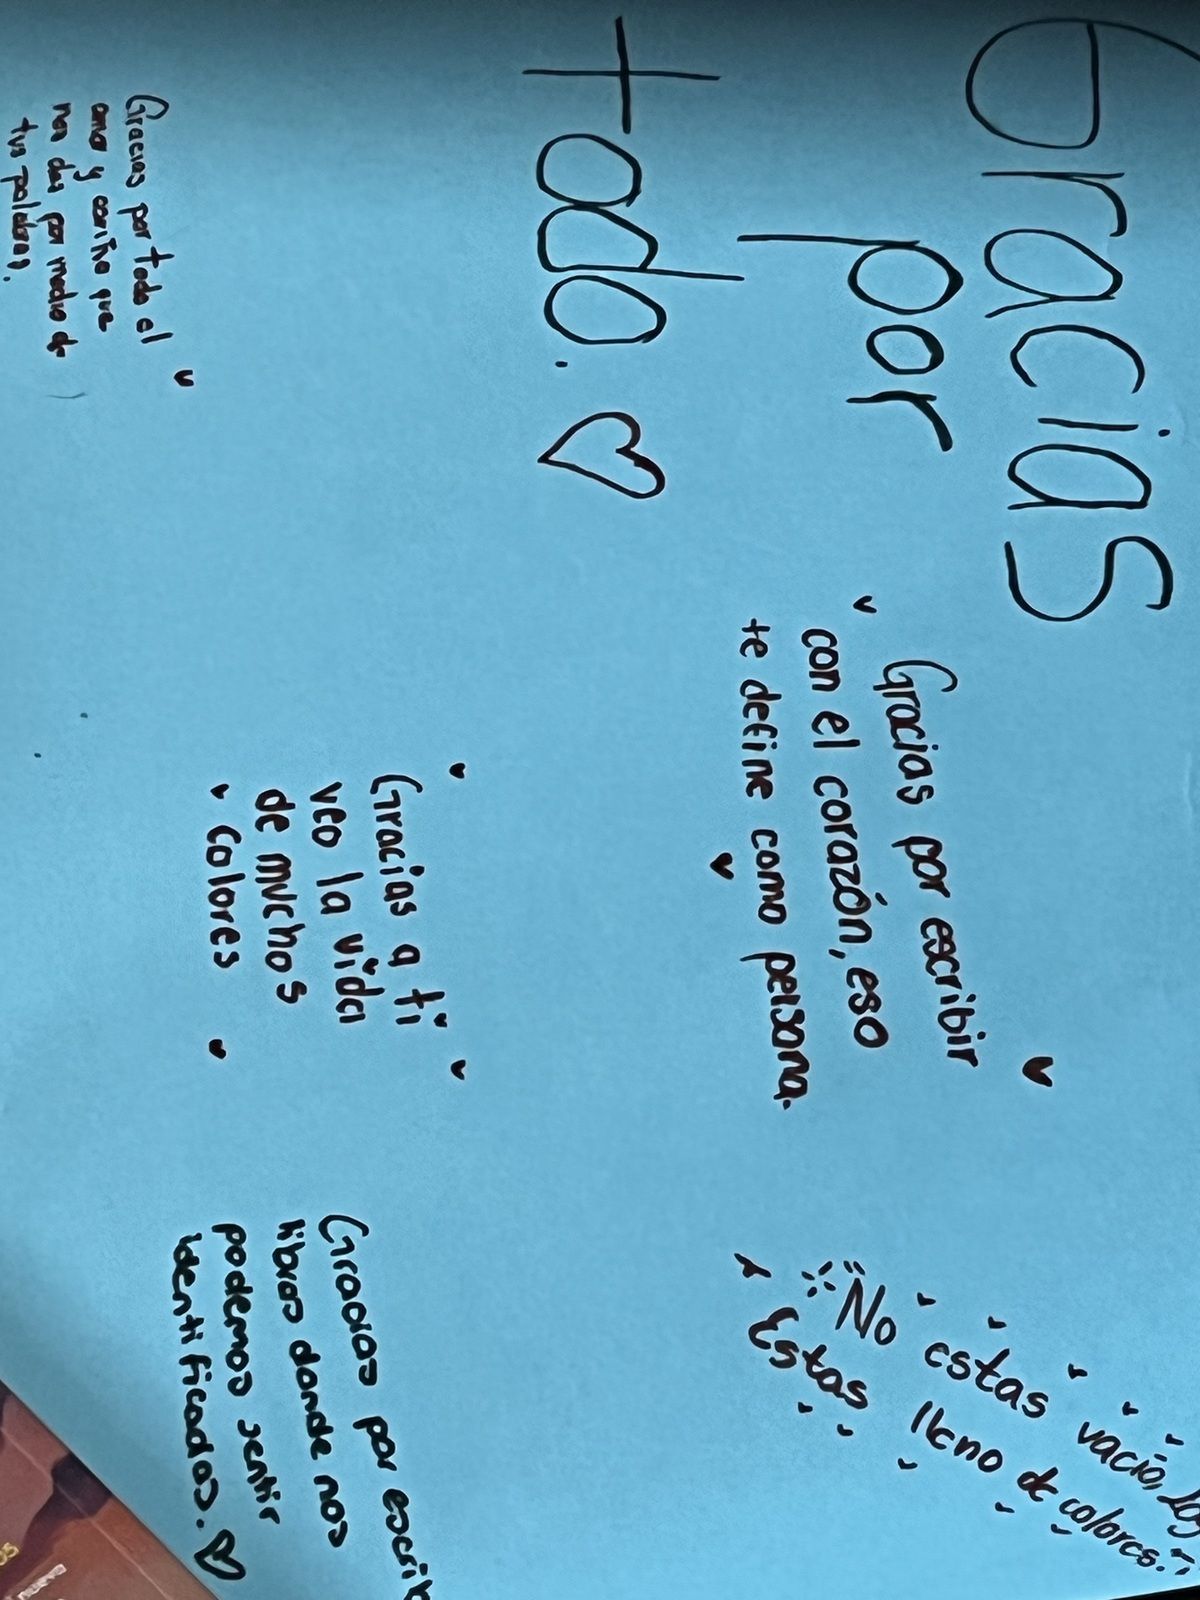 Gracias
por
todo.
Gracias por escribir
con el corazón, eso
te define como persona.
No estas vacio,
Estas lleno de colores.
Gracias por todo el
amor y cariño que
nos das por medio de
tus palabras.
Gracias a ti
veo la vida
de muchos
colores
Gracias por escrib
libros donde nos
podemos sentir
identificados.